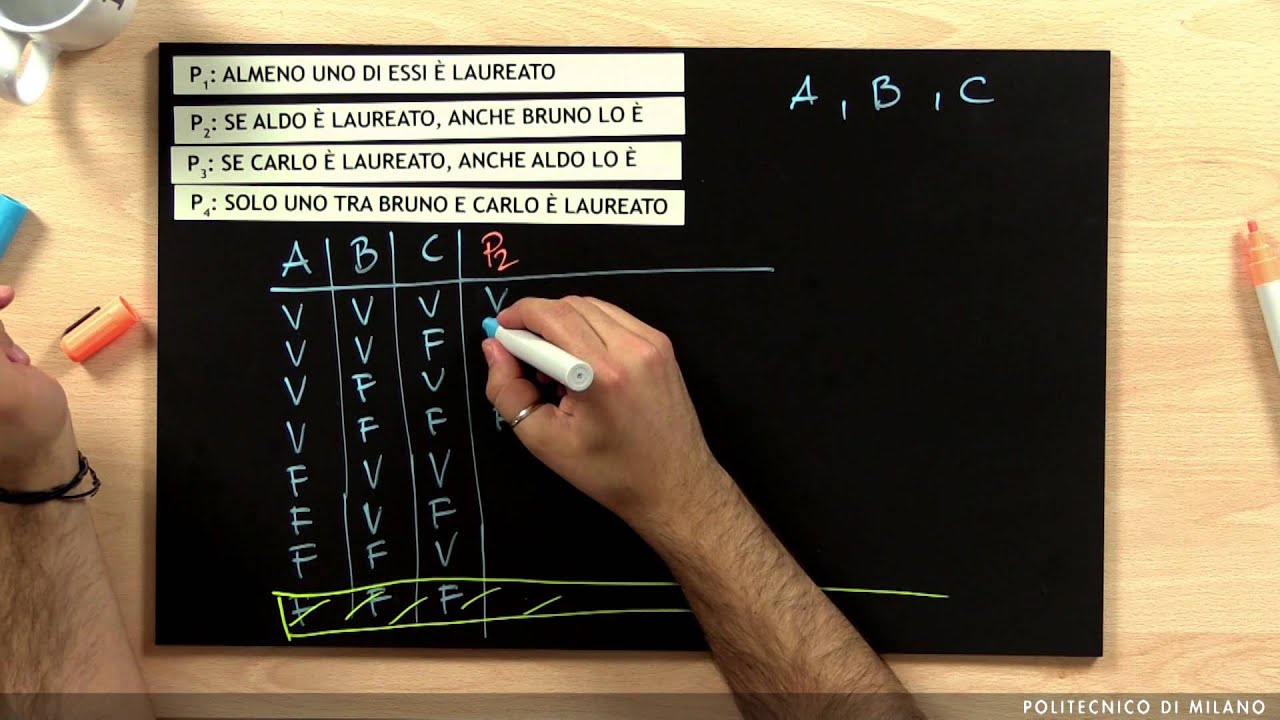 P1: ALMENO UNO DI ESSI È LAUREATO
P2: SE ALDO È LAUREATO, ANCHE BRUNO LO È
P3: SE CARLO È LAUREATO, ANCHE ALDO LO È
P4: SOLO UNO TRA BRUNO E CARLO È LAUREATO
A , B , C
A B C P2
V V V V
V V F
V F V
V F F F
F V V
F V F
F F V
F F F
POLITECNICO DI MILANO